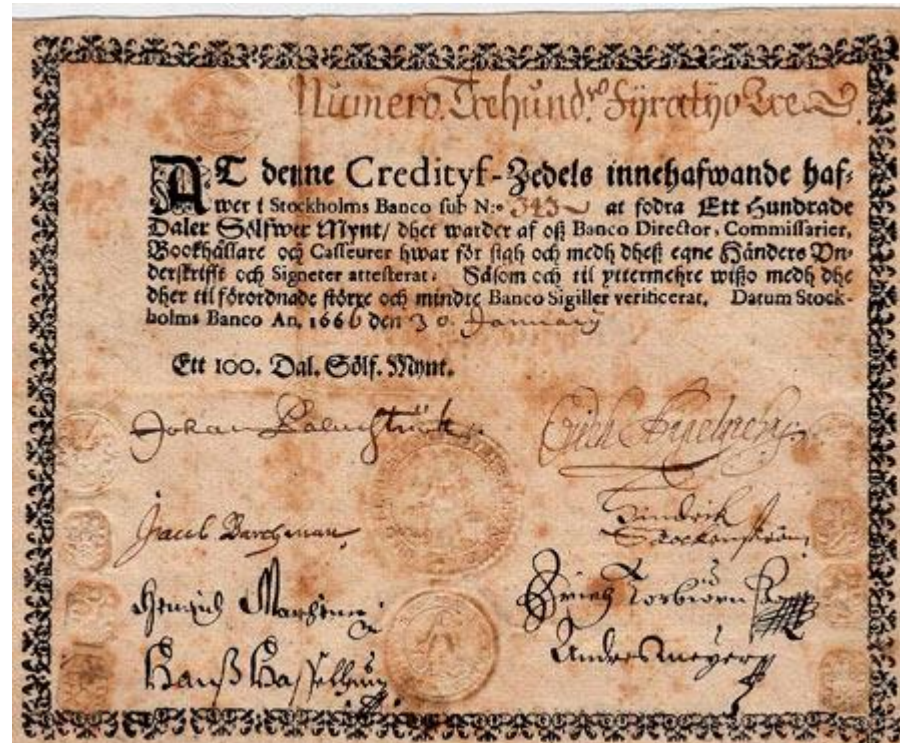 Numero. Trehund.ro Fyratyo Tre.
AT denne Credityf-Zedels innehafwande haf-
wer i Stockholms Banco sub N:o 343 at fodra Ett Hundrade
Daler Sölfwer Mynt/ dhet warder af oß Banco Director, Commissarier,
Bookhållare och Casseurer hwar för sigh och medh dheß egne Händers Vn-
derskrifft och Signeter attesterat. Såsom och til yttermehre wißo medh dhe
dher til förordnade större och mindre Banco Sigiller verificerat. Datum Stock-
holms Banco An. 1666 den 30. January
Ett 100. Dal. Sölf. Mynt.
Johan Palmstruch
Jacob Barchman
Hindrik
Stockenström
Hans
Anders Meyer